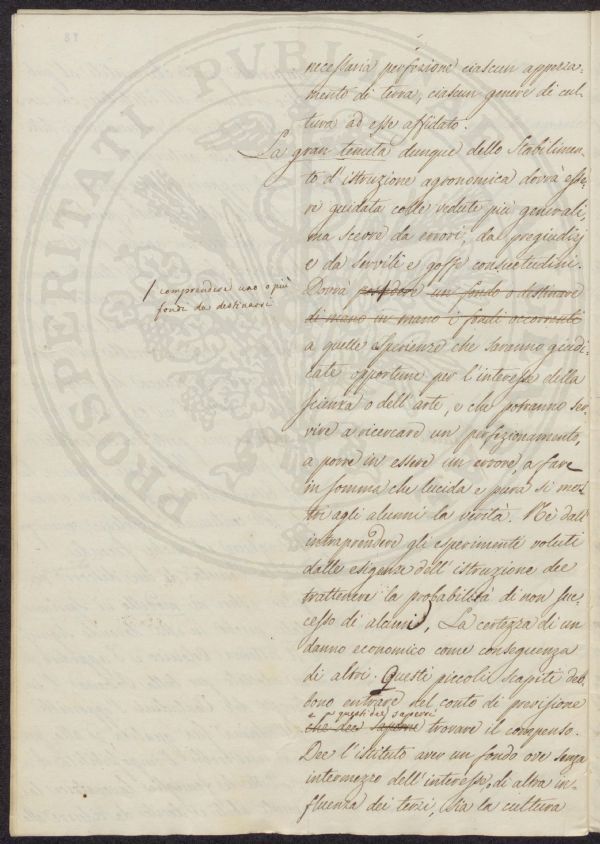 necessaria perfezione ciascun appeza-
mento di terra, ciascun genere di cul
tura ad esse affidato.
La gran tenuta dunque dello Stabilimen-
to d'istruzione agronomica dovrà esse-
re guidata colle vedute più generali,
ma scevre da errori, dal pregiudizj
e da servili e goffe consuetudini.
Dovrà un fondo o destinare
di mano in mano i fondi occorrenti
/ comprendere uno o più
fondi da destinarsi
a quelle esperienze che saranno giudi-
cate opportune per l'interesse della
scienza o dell'arte, e che potranno ser-
vire a ricercare un perfezionamento,
a porre in essere un errore, a fare
in somma che lucida e pura si mos-
tri agli alunni la verità. Nè dall'
intraprendere gli esperimenti voluti
dalle esigenze dell'istruzione dee
trattenere la probabilità di non suc-
cesso di alcuni, La certezza di un
danno economico come conseguenza
di altri. Questi piccoli scapiti deb
bono entrare nel conto di previsione
e questi dee sapersi
che dee sapone trovare il compenso.
Dee l'istituto aver un fondo ove senza
intermezzo dell'interesse, di altra in-
fluenza dei terzi, sia la cultura
PROSPERITATI PUBLICAE